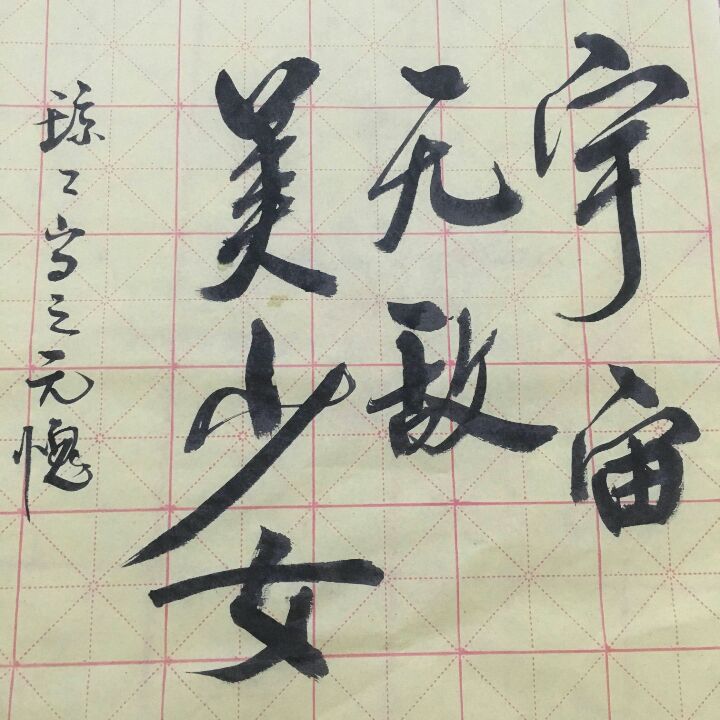 宇宙
无敌
美少女
琼々写之无愧